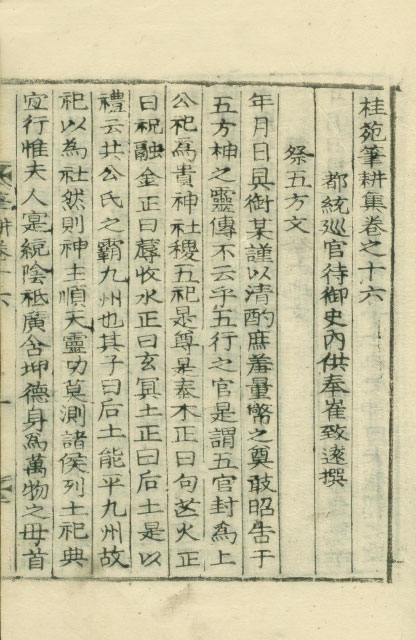 桂苑筆耕集卷之十六
都統巡官待御史內供奉崔致遠撰
祭五方文
年月日具銜某謹以清酌庶羞量幣之奠敢昭告于
五方神之靈傳不云乎五行之官是謂五官封為上
公祀為貴神社稷五祀是尊是奉木正曰句芒火正
曰祝融金正曰蓐收水正曰玄冥土正曰后土是以
禮云共公氏之霸九州也其子曰后土能平九州故
祀以為社然則神主順天靈功莫測諸侯列土祀典
宜行惟夫人寔統陰祗廣含坤德身為萬物之母首